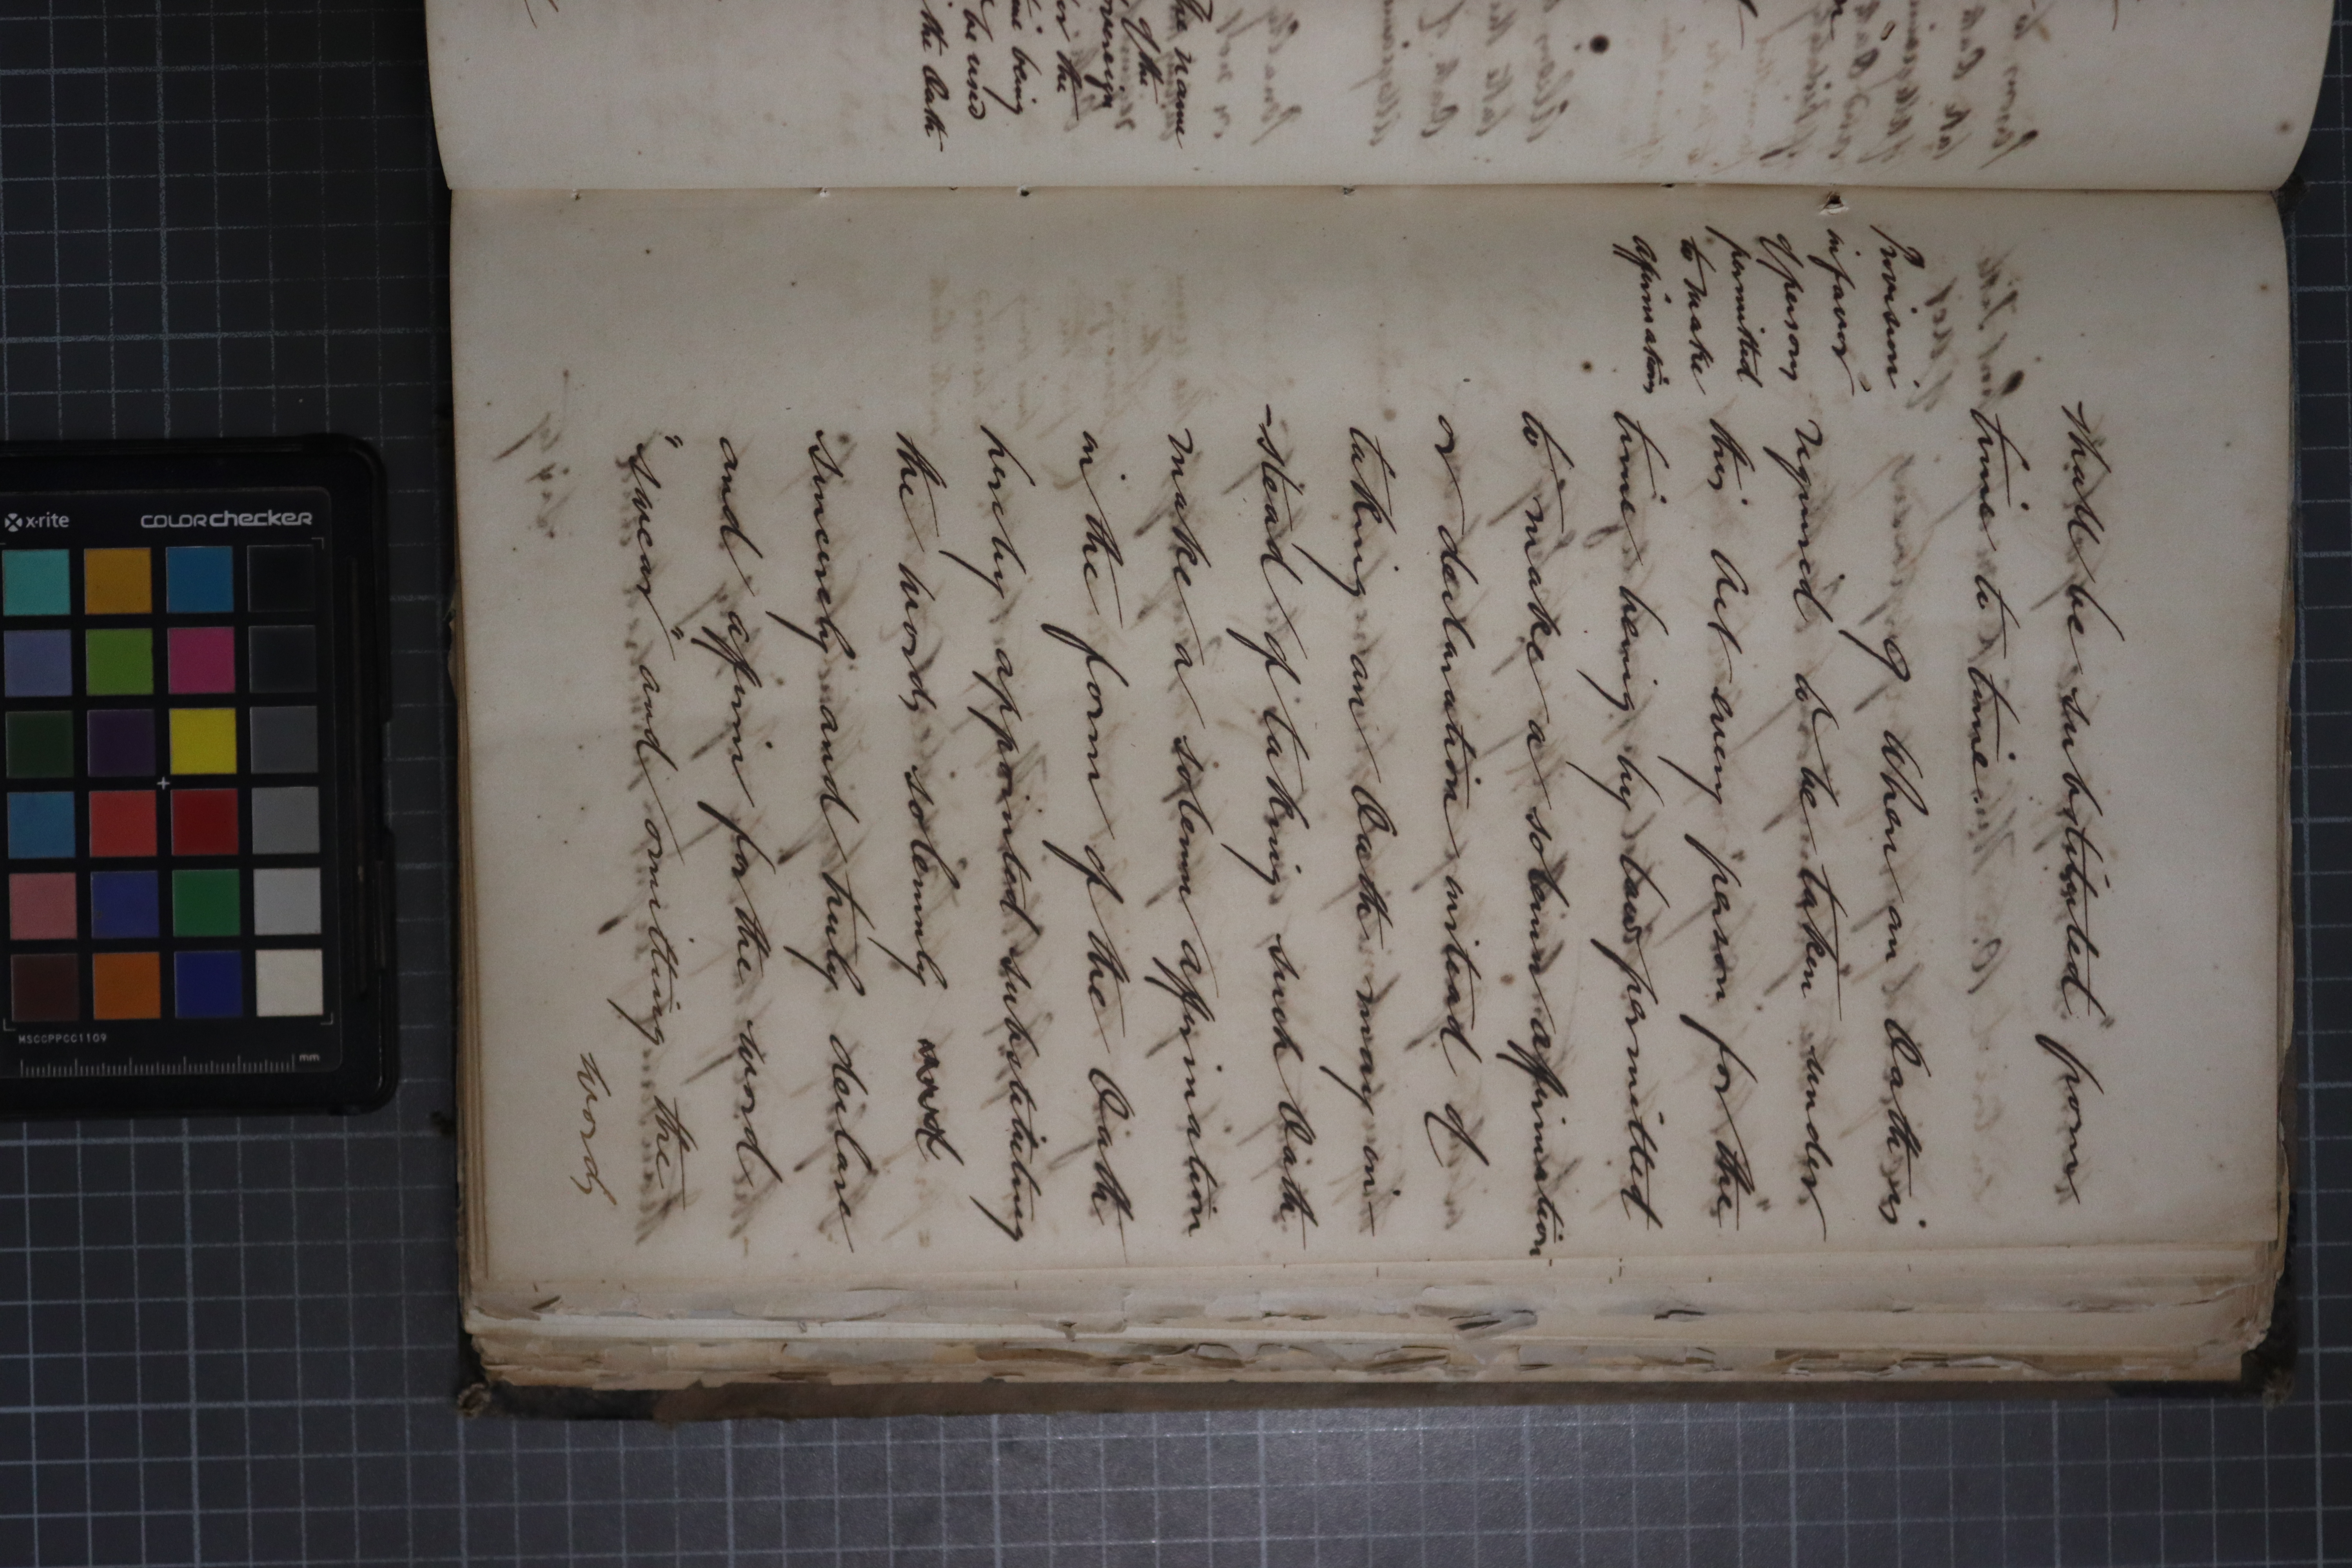 shall be substituted from
time to time
Provision
in favor
of persons
permitted
to make
affirmation
9 When an Oath is
required to be taken under
this Act every person for the
time being by law permitted
to make a solemn affirmation
or declaration instead of
taking an Oath may in-
-stead of taking such Oath
make a solemn affirmation
in the form of the Oath
hereby appointed substituting
the words solemnly
sincerely and truly declare
and affirm for the word
"swear" and omitting the
words
The name
of the
Sovereign
for the
time being
to be used
in the Oath
x-rite
colorchecker
MSCCPPCC1109
mm